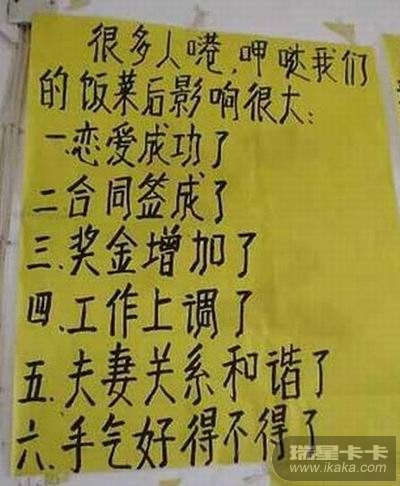 很多人嗯,呷哒我们
的饭菜后影响很大:
一恋爱成功了
二合同签成了
三.奖金增加了
四.工作上调了
五.夫妻关系和谐了
六.手气好得不得了
瑞星卡卡
www.ikaka.com